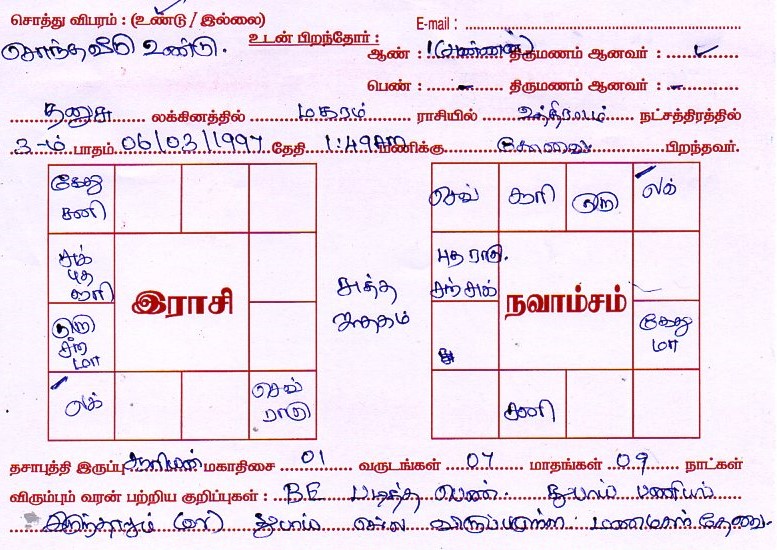 சொத்து விபரம் : (உண்டு / இல்லை) E-mail :
சொந்தவீடு உண்டு. உடன் பிறந்தோர் : ஆண் : 1 (அண்ணன்) திருமணம் ஆனவர் : ✓
பெண் : - திருமணம் ஆனவர் : -
தனுசு லக்கினத்தில் மகரம் ராசியில் உத்திராடம் நட்சத்திரத்தில்
3-ம் பாதம் 06/03/1997 தேதி 1:49AM மணிக்கு கோவை பிறந்தவர்.
கேது சனி
சுக் புத சூரி
குரு சந் மா
லக்
செவ் ராகு
இராசி
சுத்த ஜாதகம்
செவ் சூரி குரு லக்
புத ராகு.
சந் சுக்
நவாம்சம்
கேது மா
சனி
தசாபுத்தி இருப்பு சூரியன் மகாதிசை 01 வருடங்கள் 07 மாதங்கள் 09 நாட்கள்
விரும்பும் வரன் பற்றிய குறிப்புகள் : B.E படித்த பெண். துபாய் பணியில்
இருந்தாலும் (or) துபாய் செல்ல விருப்பமுள்ள மணமகள் தேவை.